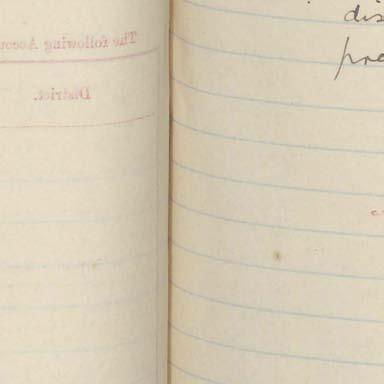 The following Accou
District.
dis
pre